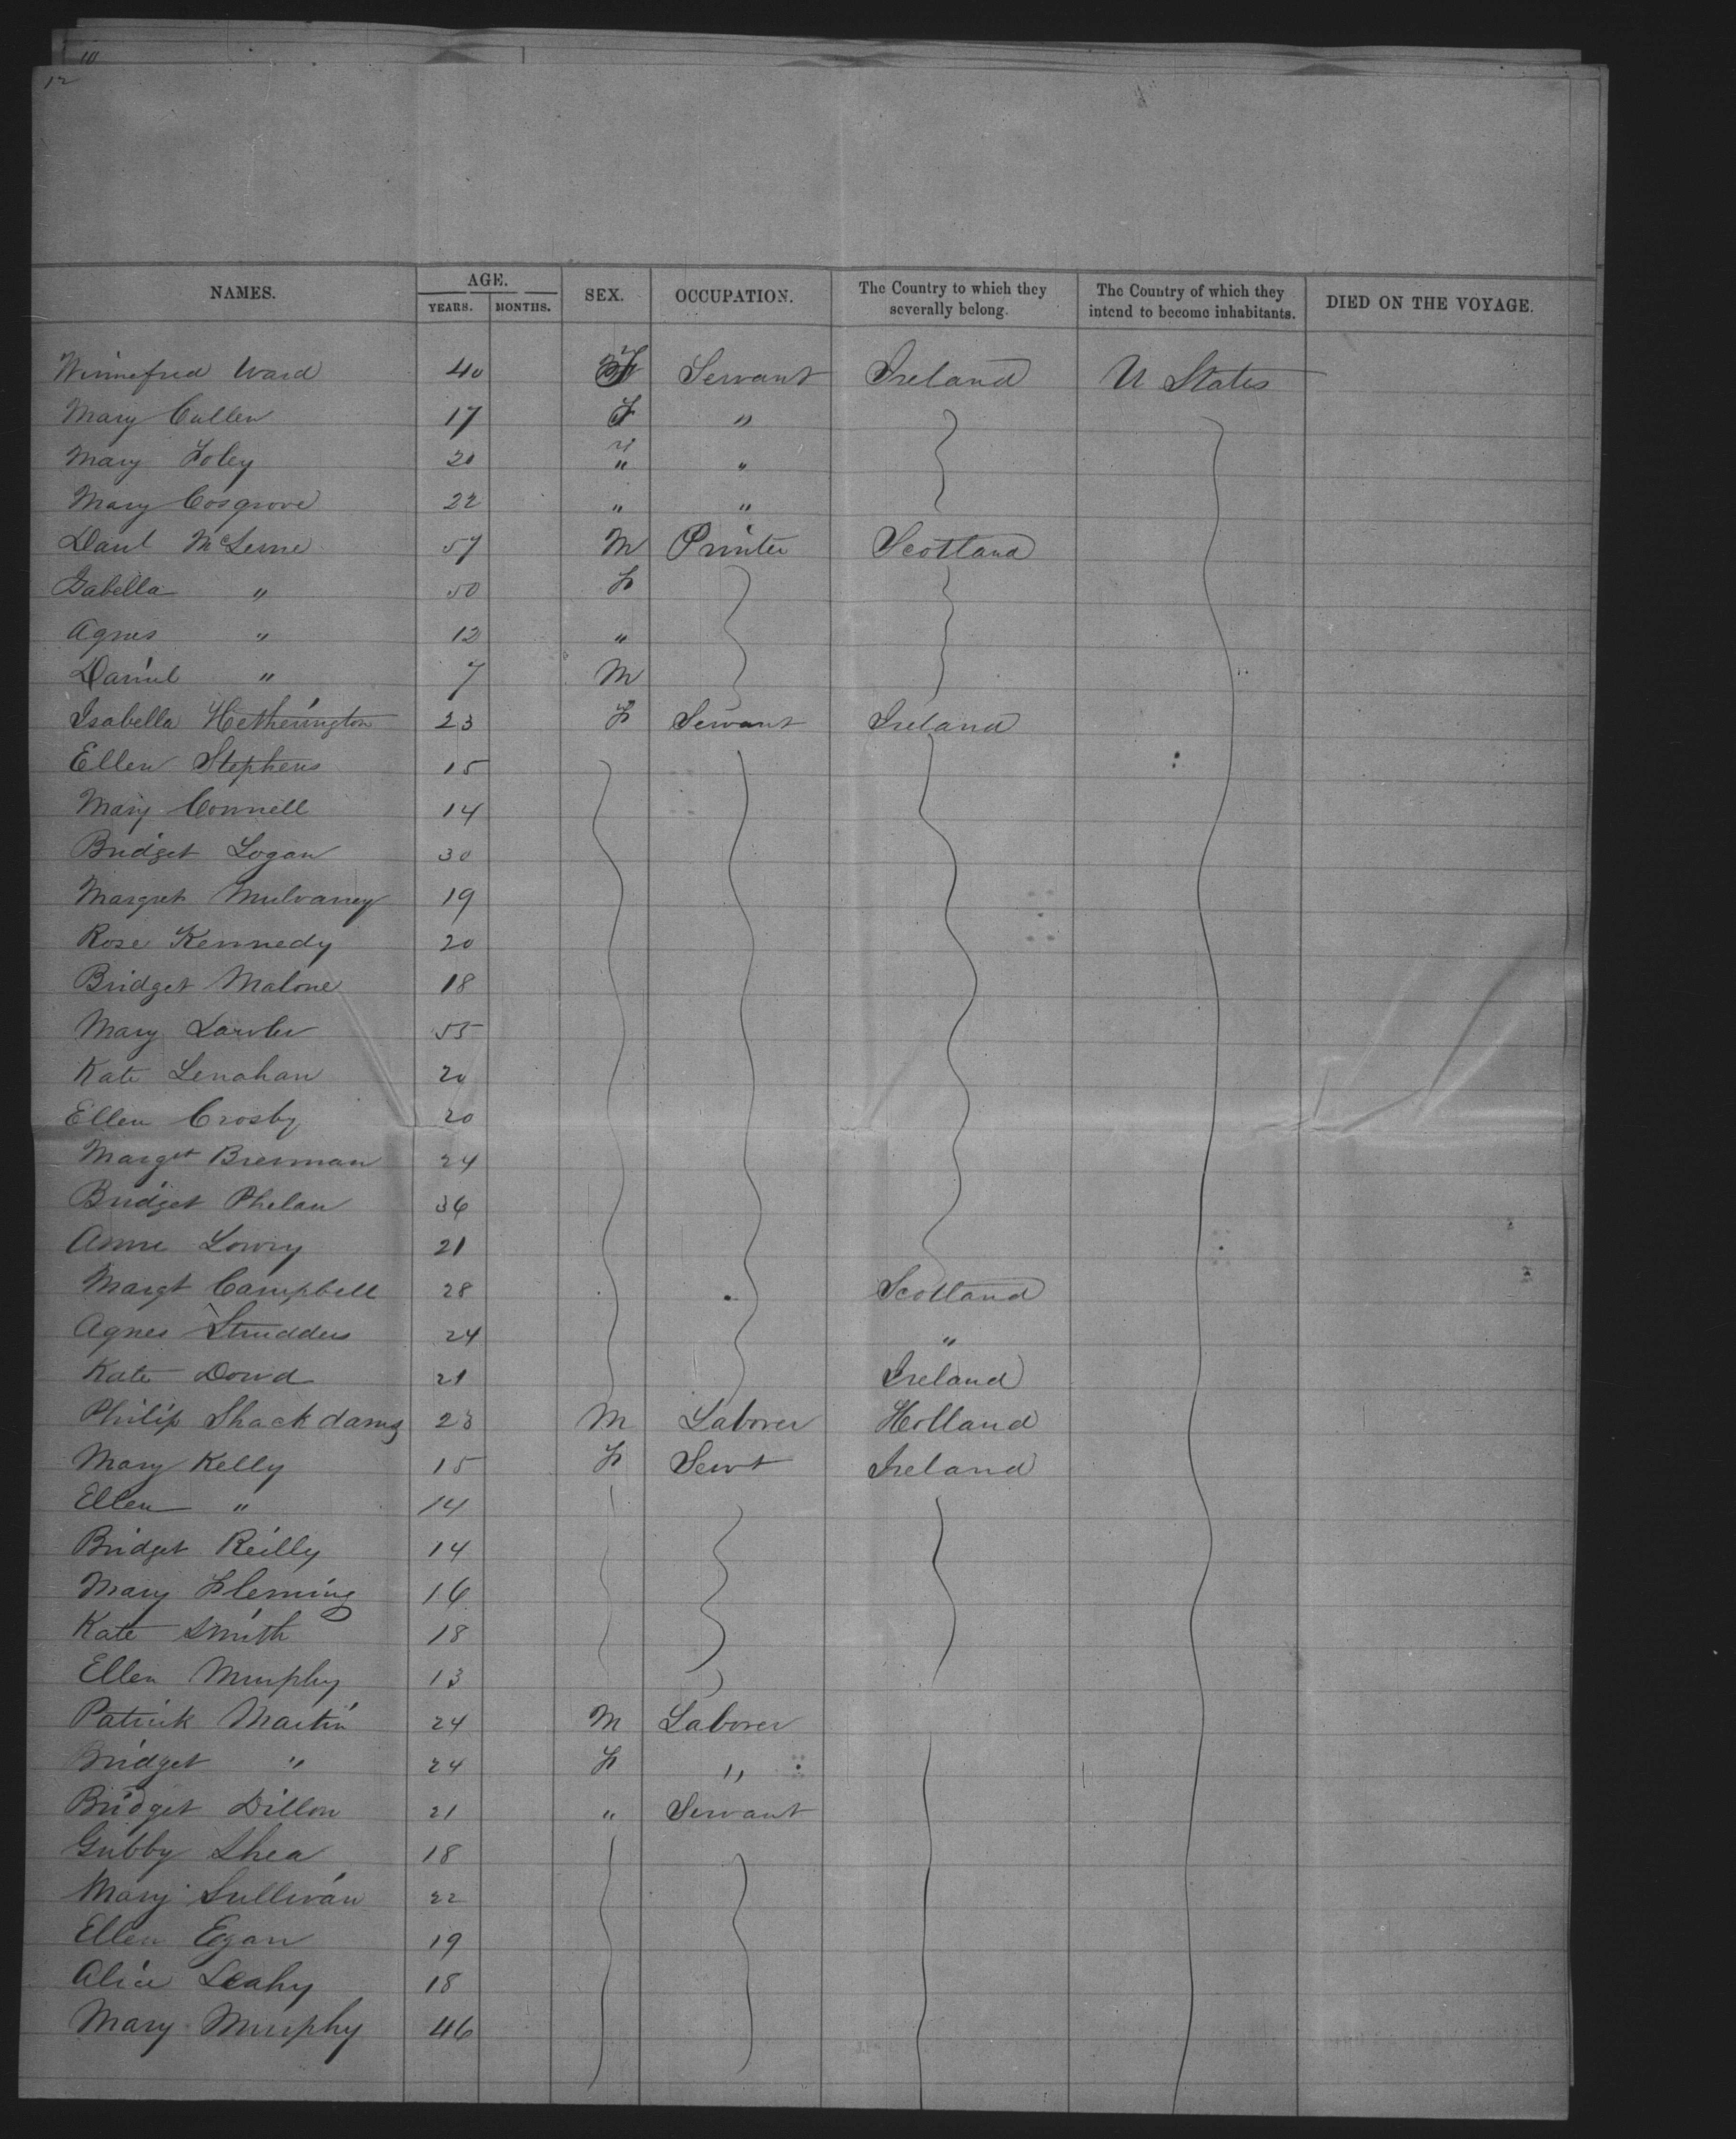 10
12
NAMES. AGE. YEARS. MONTHS. SEX. OCCUPATION. The Country to which they severally belong. The Country of which they intend to become inhabitants. DIED ON THE VOYAGE.
Winnefred Ward 40 F Servant Ireland U States
Mary Cullen 17 F "
Mary Foley 20 " "
Mary Cosgrove 22 " "
Danl 57 M Printer Scotland
Isabella " 50 F
Agnes " 12 "
Daniel " 7 M
Isabella Hetherington 23 F Servant Ireland
Ellen Stephens 15
Mary Connell 14
Bridget Logan 30
Margret Mulvaney 19
Rose Kennedy 20
Bridget Malone 18
Mary Lawler 55
Kate Lenahan 20
Ellen Crosby 20
Margt Brennan 24
Bridget Phelan 36
Anne Lowry 21
Margt Campbell 28 Scotland
Agnes Strudders 24 "
Kate Dowd 21 Ireland
Philip 23 M Laborer Holland
Mary Kelly 15 F Servt Ireland
Ellen " 14
Bridget Reilly 14
Mary Fleming 16
Kate Smith 18
Ellen Murphy 13
Patrick Martin 24 M Laborer
Bridget " 24 F "
Bridget Dillon 21 " Servant
Gubby Shea 18
Mary Sullivan 22
Ellen Egan 19
Alice Leahy 18
Mary Murphy 46